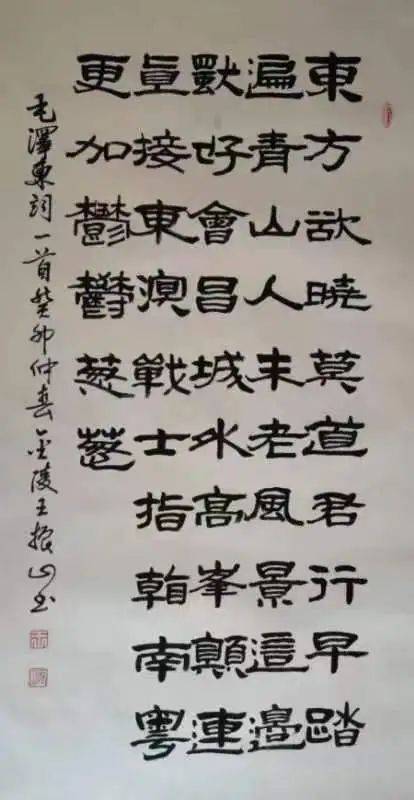 東方欲曉莫道君行早踏
遍青山人未老風景這邊
獨好會昌城外高峯顛連
直接東溟戰士指看南粵
更加鬱鬱葱葱
毛澤東詞一首癸卯仲春金陵王振山书